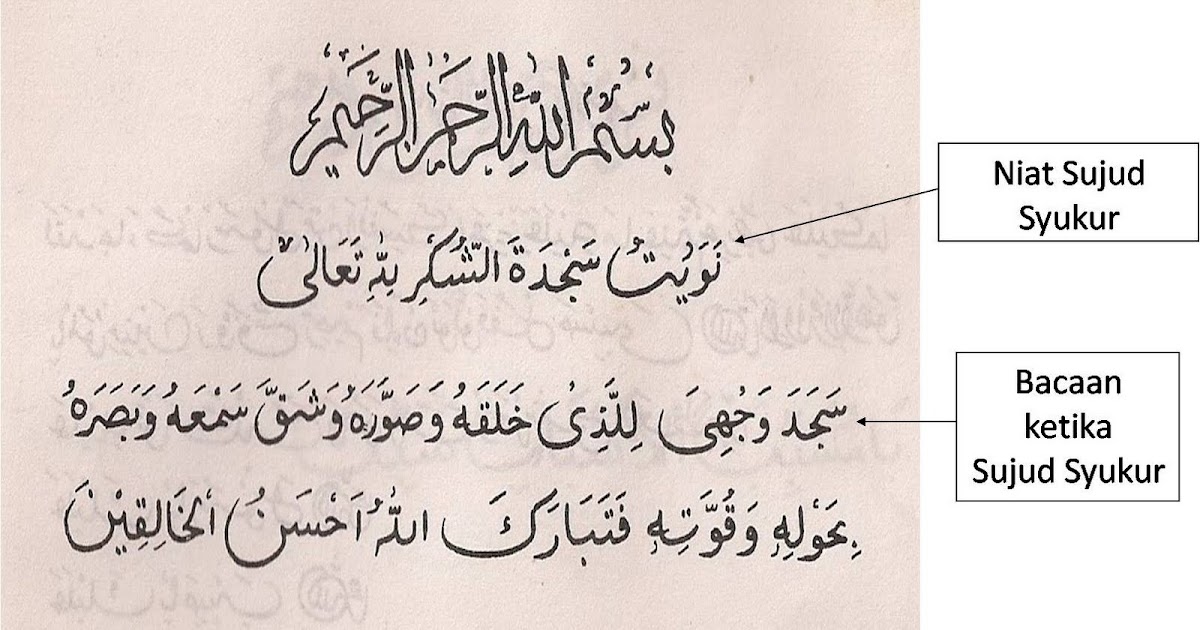 بِسْمِ اللّٰهِ الرَّحْمٰنِ الرَّحِيْمِ
Niat Sujud
Syukur
نَوَيْتُ سَجْدَةَ الشُّكْرِ لِلّٰهِ تَعَالٰى
Bacaan
ketika
Sujud Syukur
سَجَدَ وَجْهِىَ لِلَّذِىْ خَلَقَهُ وَصَوَّرَهُ وَشَقَّ سَمْعَهُ وَبَصَرَهُ
بِحَوْلِهِ وَقُوَّتِهِ فَتَبَارَكَ اللّٰهُ اَحْسَنُ الْخَالِقِيْنَ